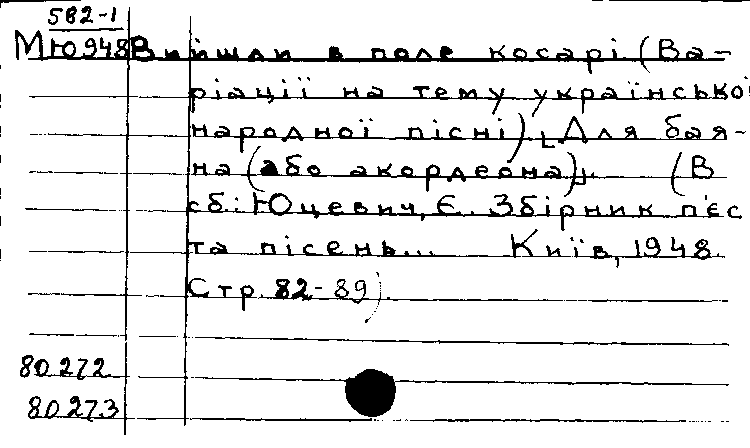 582-1
МЮ948 Вийшли в поле косарі (Ва-
ріації на тему української
народної пісні) [Для бая-
на (або акордеона)]. (В
сб: Юцевич, Є. Збірник п'єс
та пісень... Київ, 1948.
Стр. 82-89).
80272
80273